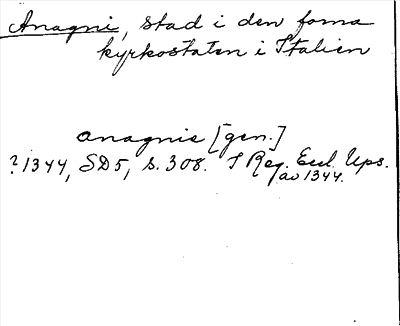 Anagni, stad i den forna
kyrkostaten i Italien
anagnie [gen.]
? 1344, SD5, s. 308. I Reg. Eccl. Ups.
av 1344.